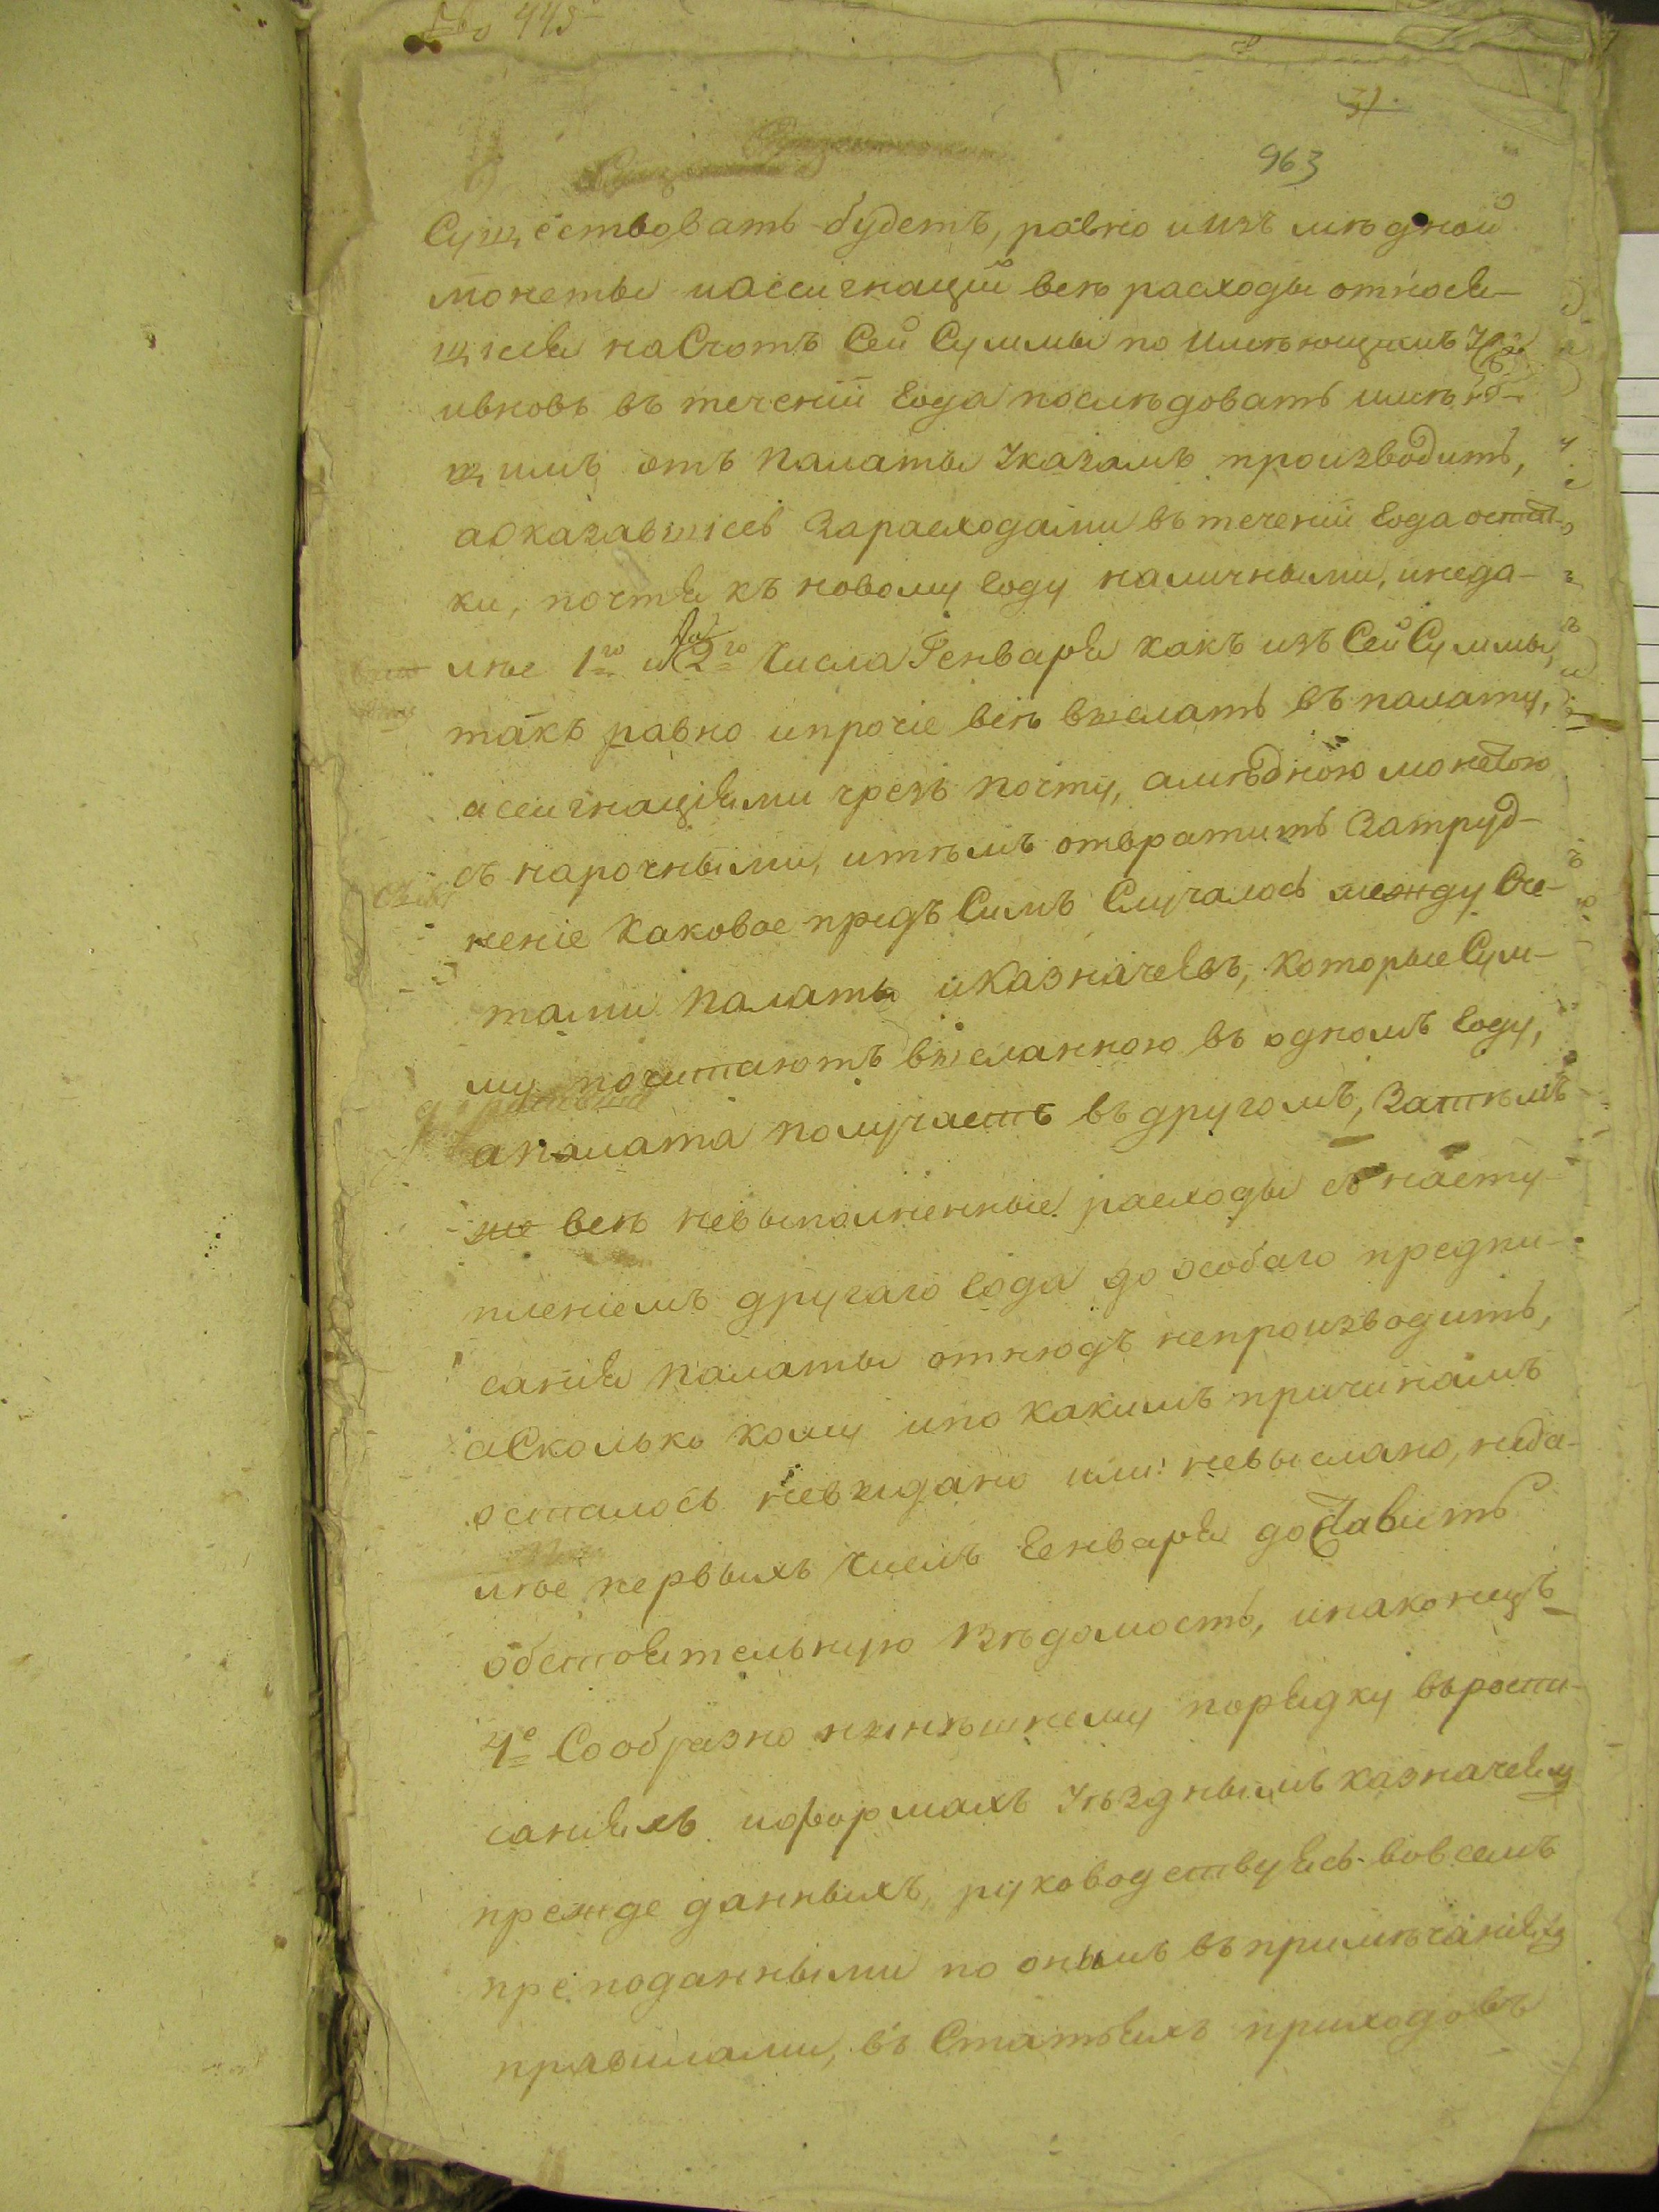 963
Существовать будетъ, равно и изъ мѣдной
монеты и ассигнацій всѣ расходы относя-
щіеся на Счотъ Сей Суммы по имѣющимъ
и вновь въ теченіи Года послѣдовать имѣю-
щимъ отъ палаты Указамъ производить,
а оказавшіесь За расходами въ теченіи Года остат-
ки, почтя къ новому Году наличными, и неда-
лѣе 1го и 2го Числа Генваря какъ изъ Сей Суммы,
такъ равно и прочіе всѣ выслать въ палату,
асеигнаціями чрезъ почту, а мѣдною монетою
съ нарочными, и тѣмъ отвратить Затруд-
неніе Каковое предъ Симъ Случалось между Сче-
тами палаты и Казначеевъ, которые Сум-
му почитаютъ высланною въ одномъ Году,
а палата получаетъ въ другомъ, Затѣмъ
же всѣ невыполненные расходы съ насту-
пленіемъ другаго Года до особаго предпи-
санія палаты отнюдъ непроизводить,
а Сколько кому и по какимъ причинамъ
осталось невыдано или невыслано, неда-
лѣе первыхъ Чиселъ Генваря доставить
обстоятельную Вѣдомость, и наконецъ
4е Сообразно нынѣшнему порядку въ роспи-
саніяхъ и формахъ Уѣзднымъ казначеямъ
прежде данныхъ, руководствуясь вовсемъ
преподанными по онымъ въ примѣчаніяхъ
правилами, въ Статьяхъ приходовъ